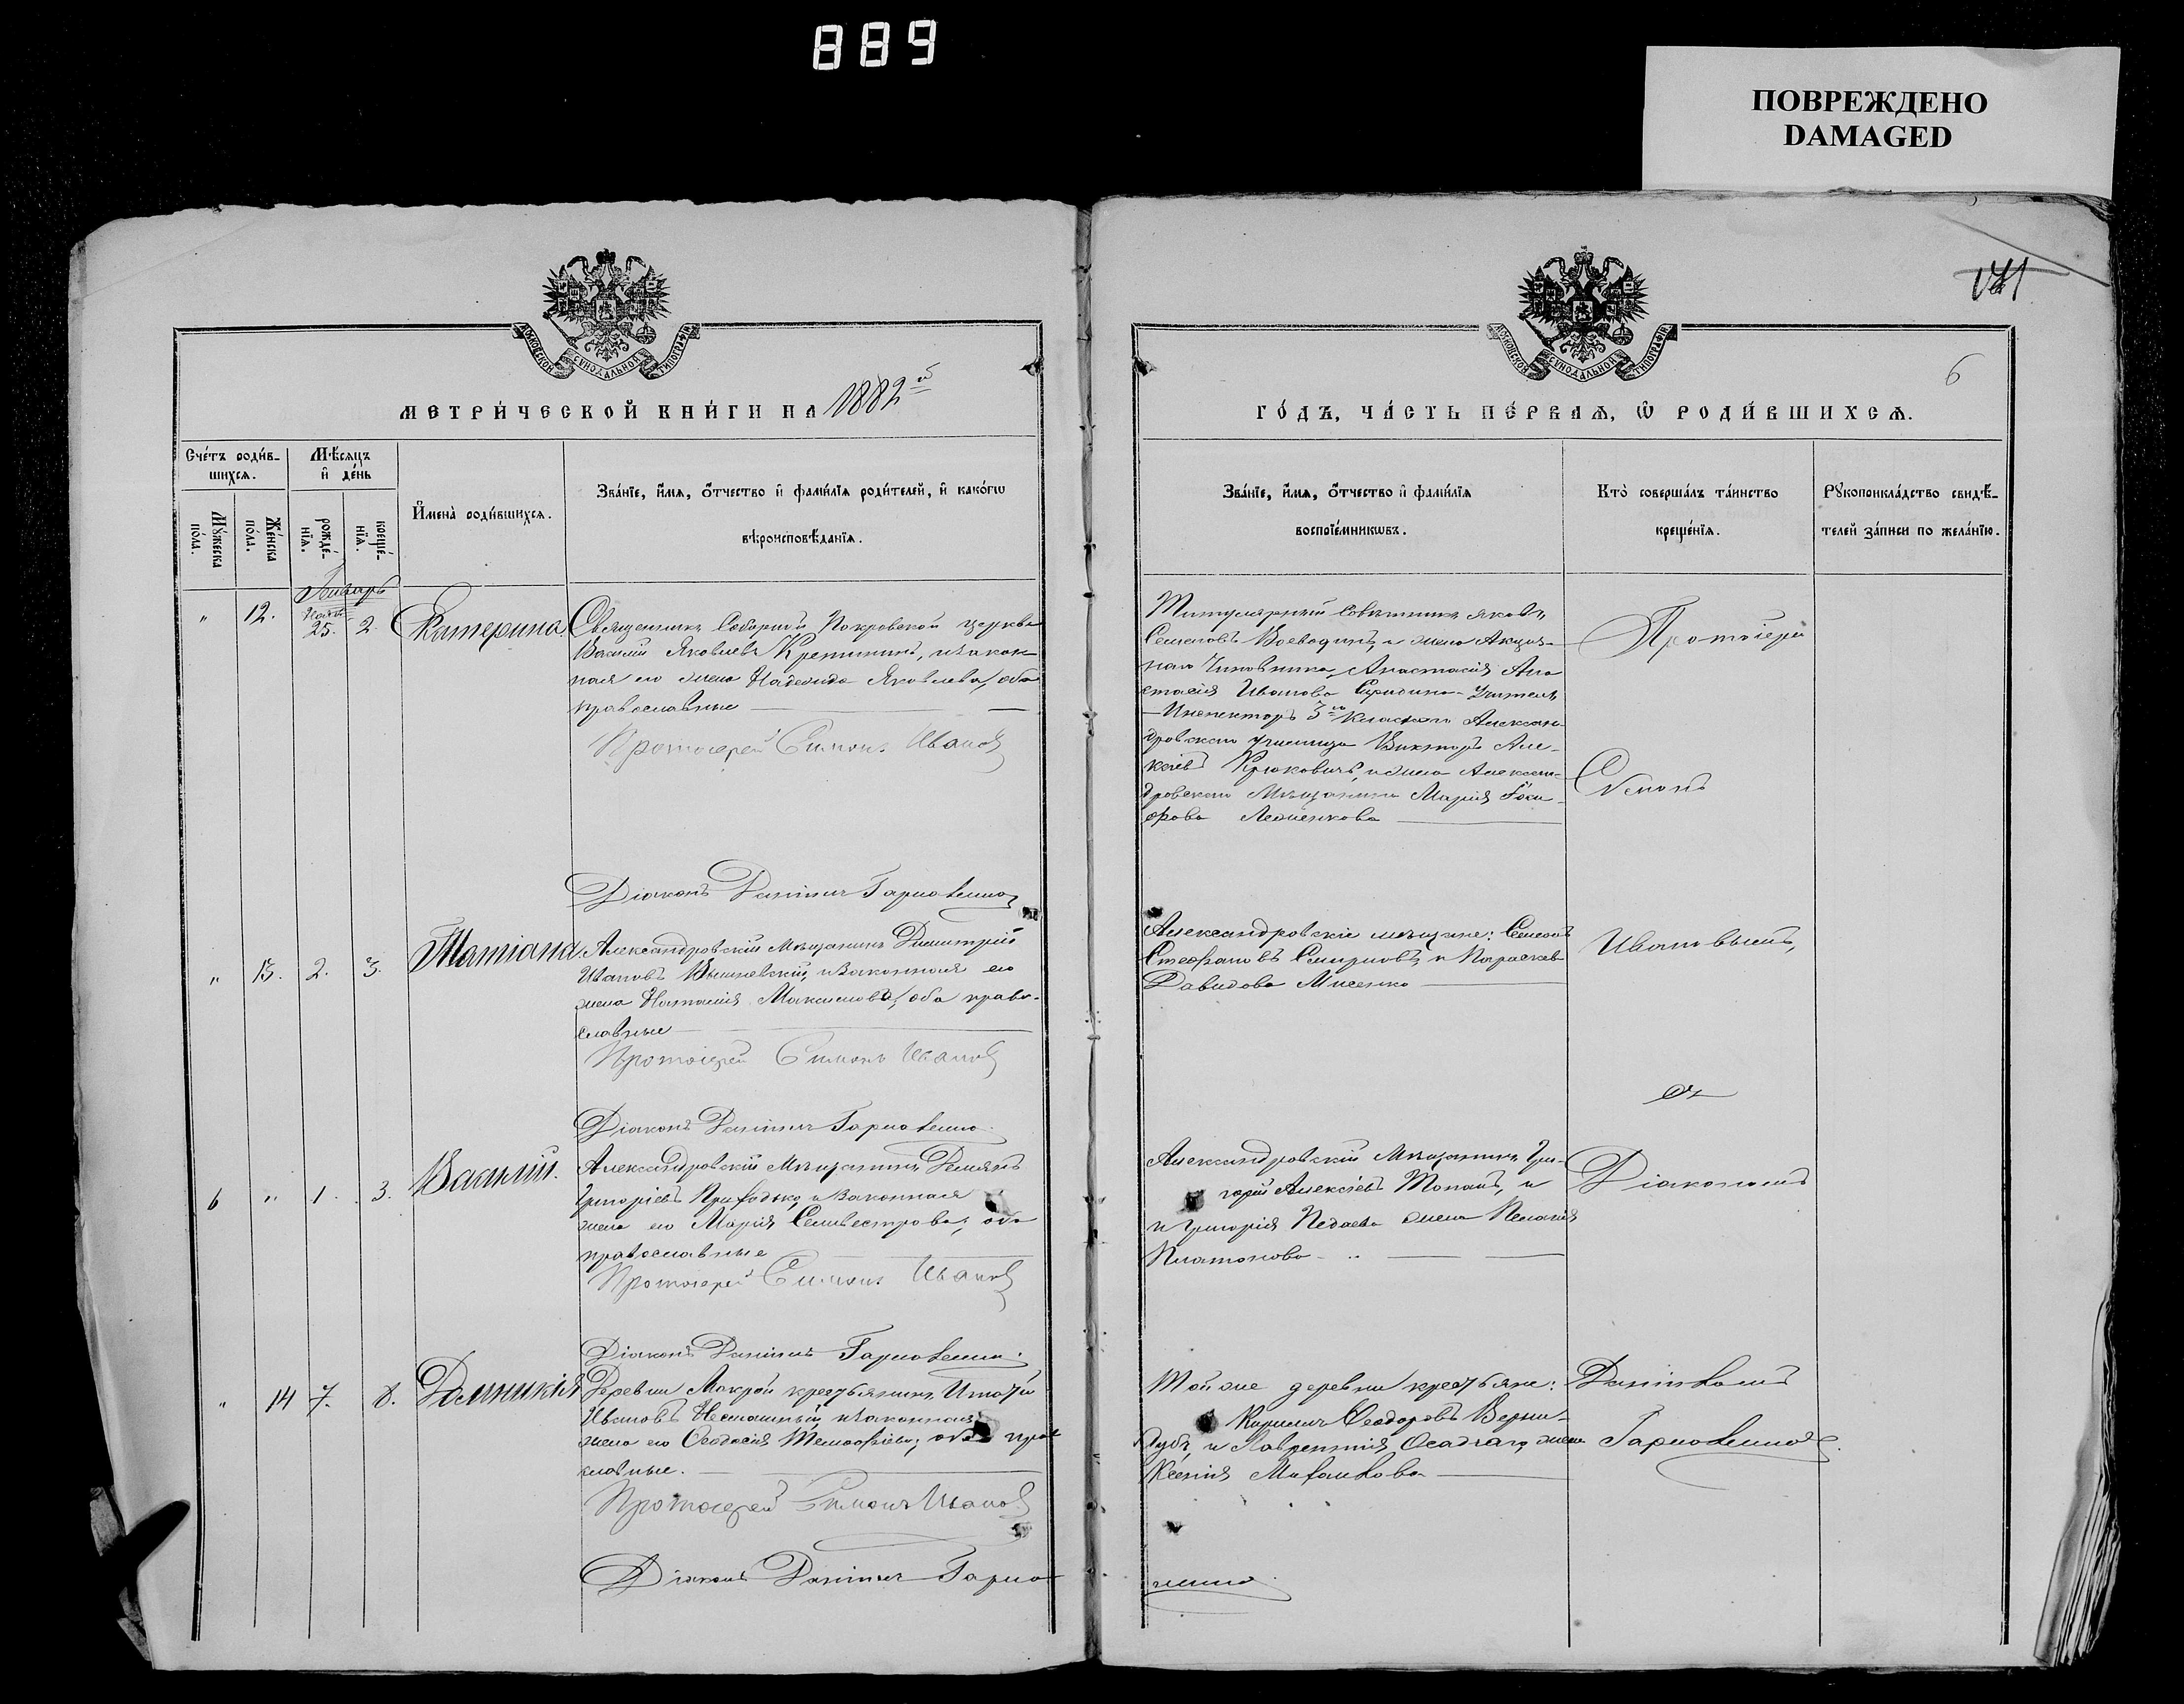 889
ПОВРЕЖДЕНО
DAMAGED
МОСКОВСКОЙ СѴНОДАЛЬНОЙ ТИПОГРАФІИ
МЕТРИ́ЧЕСКОЙ КНИ́ГИ НА 1882 й
Сче́тъ роди́в-
шихсѧ.
Мѣ́сѧцъ
и҆ де́нь
Мꙋ́жеска
по́ла.
Же́нска
по́ла.
рожде́-
нїѧ.
креще́-
нїѧ.
И҆мена̀ роди́вшихсѧ.
Зва́нїе, и҆́мѧ, ѻ҆́тчество и҆ фами́лїѧ роди́телей, и҆ како́гѡ
вѣроисповѣ́данїѧ.
Январь
" 12. 25. 2. Екатерина
Священникъ Соборной Покровской церкви
Василій Яковлевъ Кретининъ, и закон-
ная его жена Надежда Яковлева, оба
православные
Протоіерей Симонъ Ивановъ
Діаконъ Даніилъ
" 13. 2. 3. Татіана
Александровскій Мѣщанинъ Димитрій
Ивановъ Вышневскій, и законная его
жена Наталія Максимова, оба право-
славные
Протоіерей Симонъ Ивановъ
Діаконъ Даніилъ
6 " 1. 3. Василій.
Александровскій Мѣщанинъ Демьянъ
Григоріевъ Приходько, и законная
жена его Марія Сельвестрова, оба
православные
Протоіерей Симонъ Ивановъ
Діаконъ Даніилъ
" 14 7. 8. Домникія
Деревни Мокрой крестьянинъ
Ивановъ и законная
жена его Ѳеодосія оба право
славные.
Протоіерей Симонъ Ивановъ
Діаконъ Даніилъ
МОСКОВСКОЙ СѴНОДАЛЬНОЙ ТИПОГРАФІИ
6
ГО́ДЪ, ЧА́СТЬ ПЕ́РВАѦ, Ѡ҆ РОДИ́ВШИХСѦ.
Зва́нїе, и҆́мѧ, ѻ҆́тчество и҆ фами́лїѧ
воспрїе́мникѡвъ.
Кто̀ соверша́лъ та́инство
креще́нїѧ.
Рꙋкоприкла́дство свидѣ́-
телей за́писи по жела́нїю.
Титулярный Совѣтникъ Яковъ
Семеновъ Воеводинъ, и жена Акциз-
наго Чиновника, Анастасія Ана
стасія Иванова учитель
Инспекторъ 3го класснаго Алексан-
дровскаго училища Викторъ Але-
ксѣевъ Крюковичъ, и жена Алексан-
дровскаго Мѣщанина Марія
Протоіерей
Симонъ
Александровскіе мѣщане: Семенъ
Стефановъ Смирновъ, и Параскева
Давидова Мисенко
Ивановымъ,
съ
Александровскій Мѣщанинъ Гри-
горій Алексѣевъ и
и Григорія жена Пелагія
Платонова
Діакономъ
Той же деревни крестьяне:
Кириллъ Ѳеодоровъ Верни-
дубъ, и Лаврентія Осадчаго жена
Ксенія Михайлова
Даніиломъ